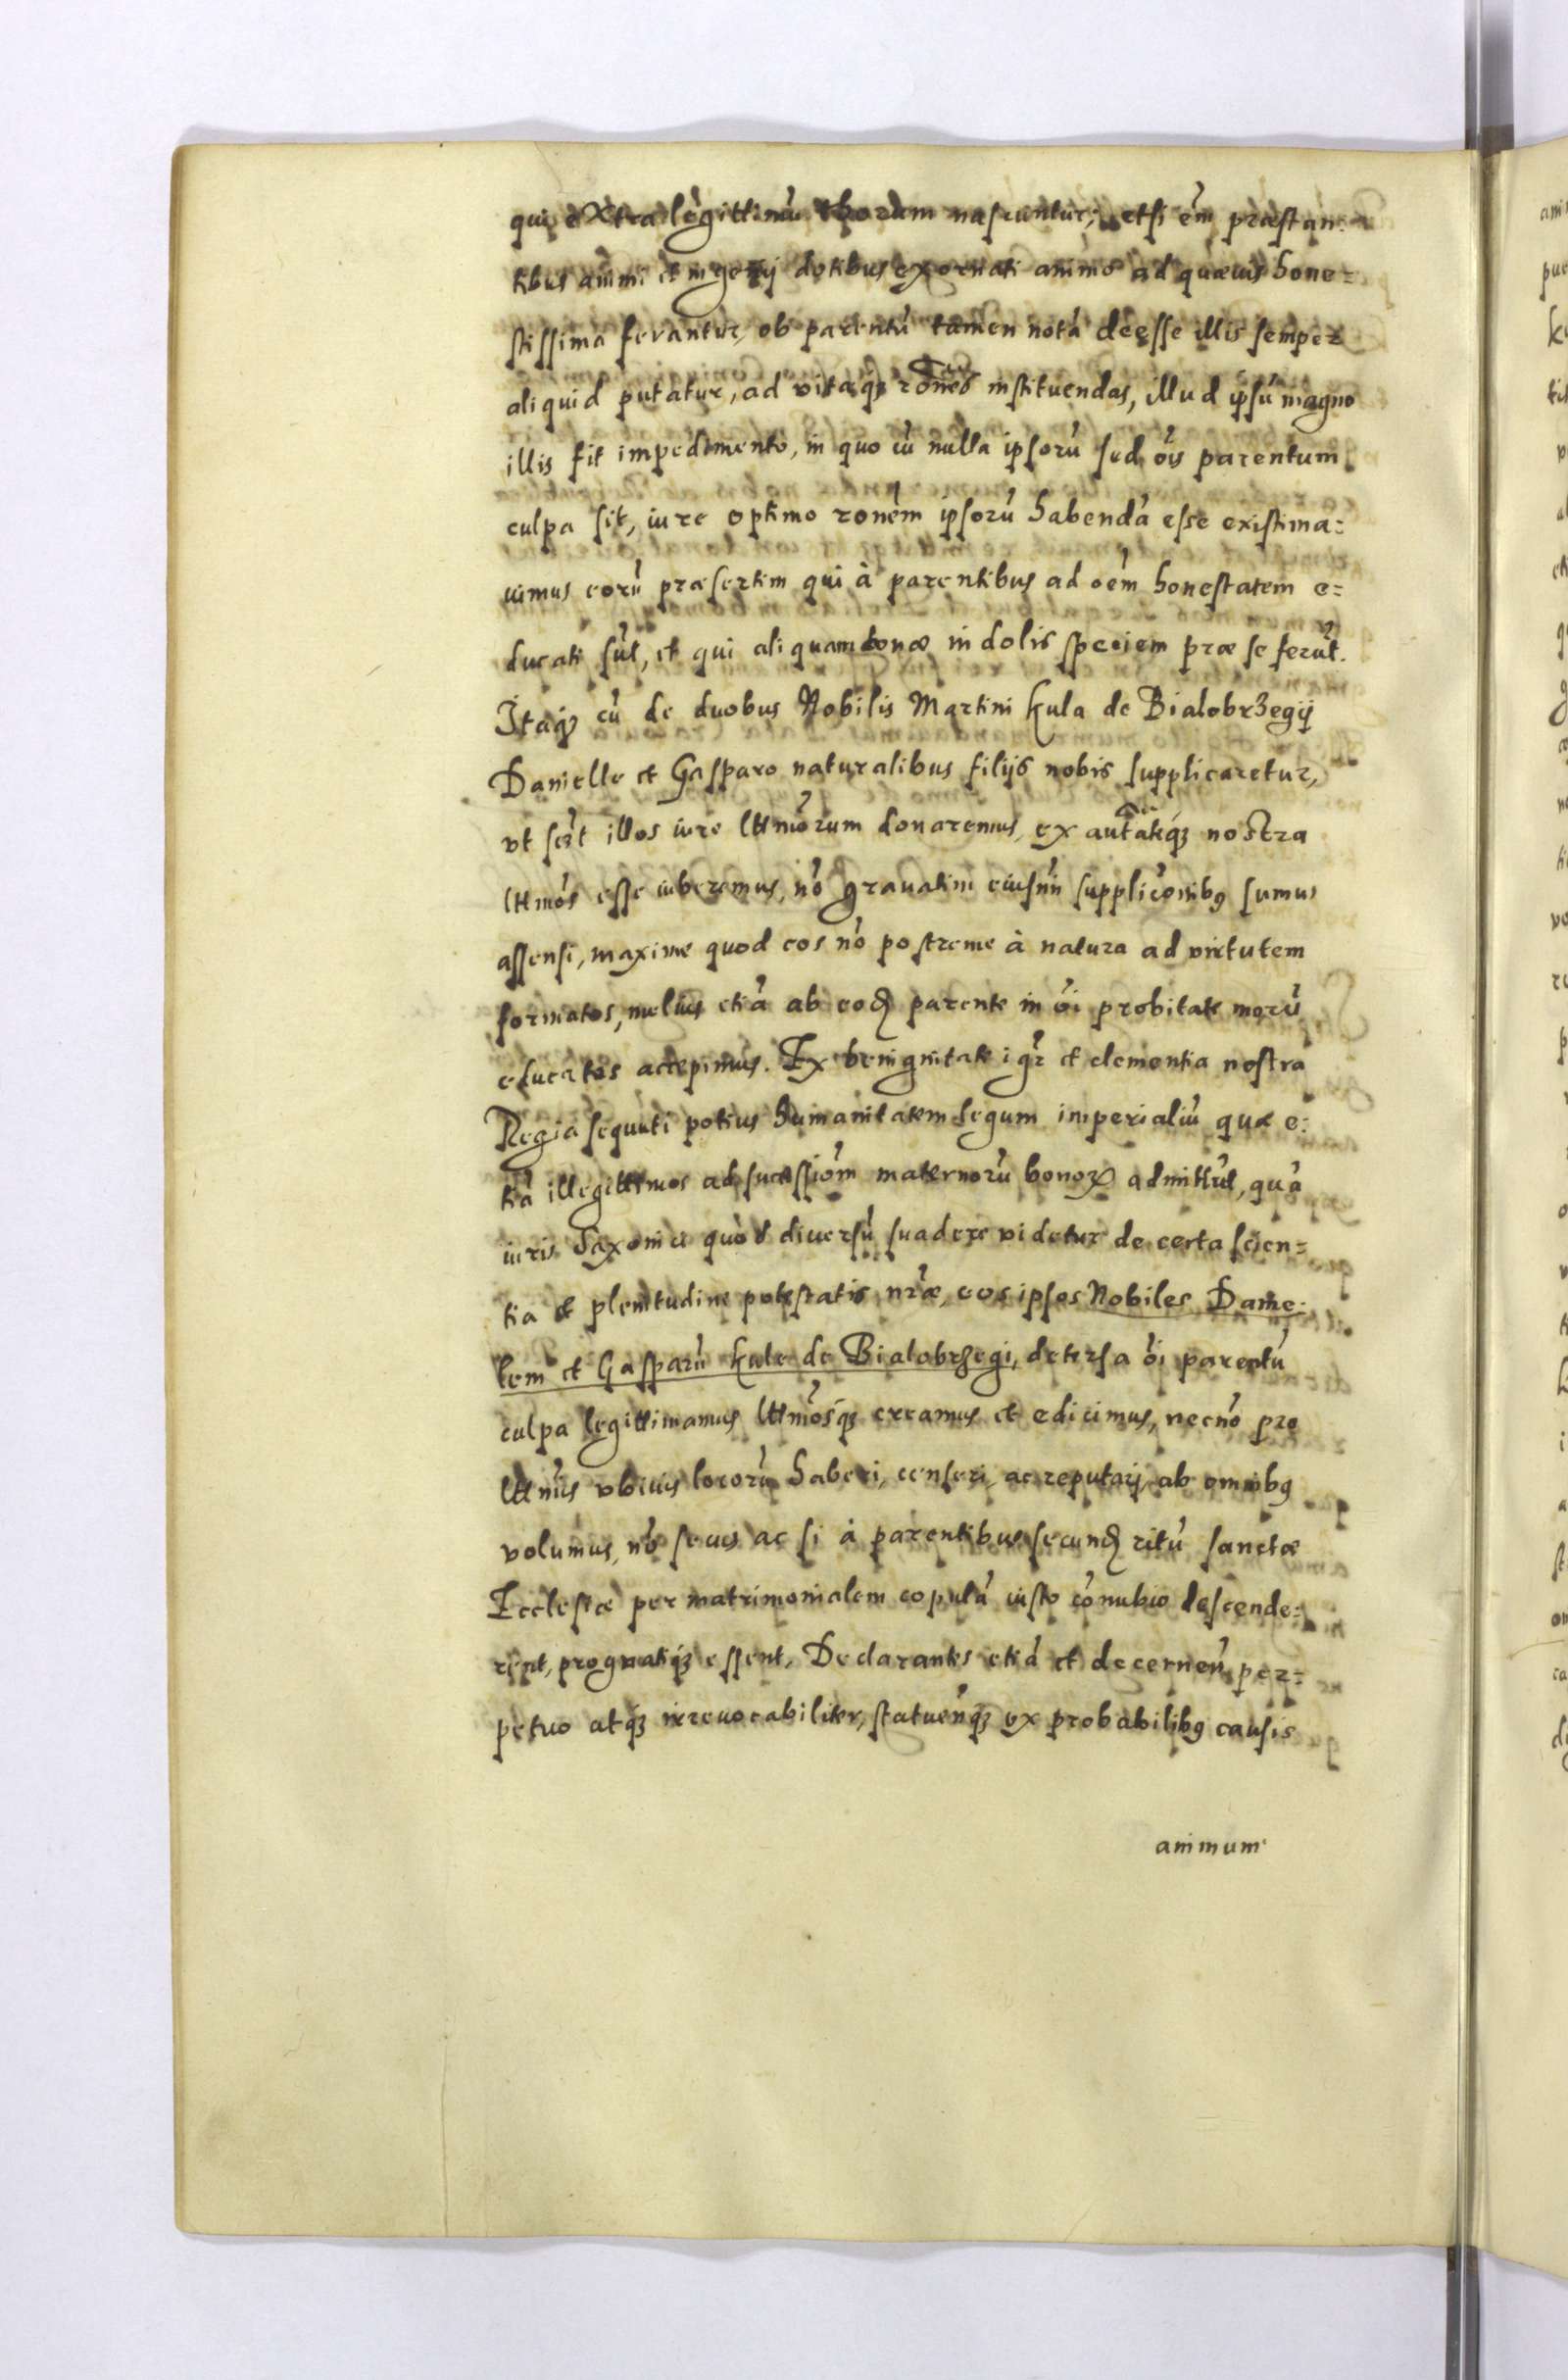 qui extra legittimũ thorum nascuntur, etsi em̃ præstan:
tibus animi et ingenij dotibus exornati animo ad quævis hone=
stissima ferantur, ob parentũ tamen notã deesse illis semper
aliquid putatur, ad vitæq; rones instituendas, illud ipsũ magno
illis fit impedimento, in quo cũ nulla ipsorũ sed õis parentum
culpa sit, iure optimo ronem ipsorũ habendã esse existima:
uimus eorũ præsertim qui à parentibus ad oẽm honestatem e=
ducati sũt, et qui aliquam bonæ indolis speciem præ se ferũt.
Itaq; cũ de duobus Nobilis Martini Kula de Bialobrzegij
Danielle et Gasparo naturalibus filijs nobis supplicaretur,
vt illos iure lttmõrum donaremus, ex autatéq; nostra
lttmõs esse iuberemus, nõ grauatim eiusm̃i supplicõnibq sumus
assensi, maxime quod eos nõ postreme à natura ad virtutem
formatos, melius etiã ab eod parente in õi probitate morũ
educatos accepimus. Ex benignitate igr̃ et clementia nostra
Regia sequuti potius humanitatem legum imperialiũ quæ e:
tiã illegittimos ad successiõm maternorũ bonor admittũt, quã
iuris Saxonici quod diuersũ suadere videtur de certa scien=
tia et plenitudine potestatis nr̃æ, eos ipsos Nobiles Danie:
lem et Gasparũ Kula de Bialobrzegi, detersa õi parentũ
culpa legittimamus lttmõsq; creamus et edicimus, necnõ pro
lttmĩs vbiuis locorũ haberi, censeri, ac reputarj, ab omnibq
volumus, nõ secus ac si à parentibus secund ritũ sanctæ
Ecclesiæ per matrimonialem copulã iusto cõnubio descende:
rent, prognatiq; essent. Declarantes etiã et decerneñ per=
petuo atq; irreuocabiliter, statueñq; ex probabilibq causis
animum